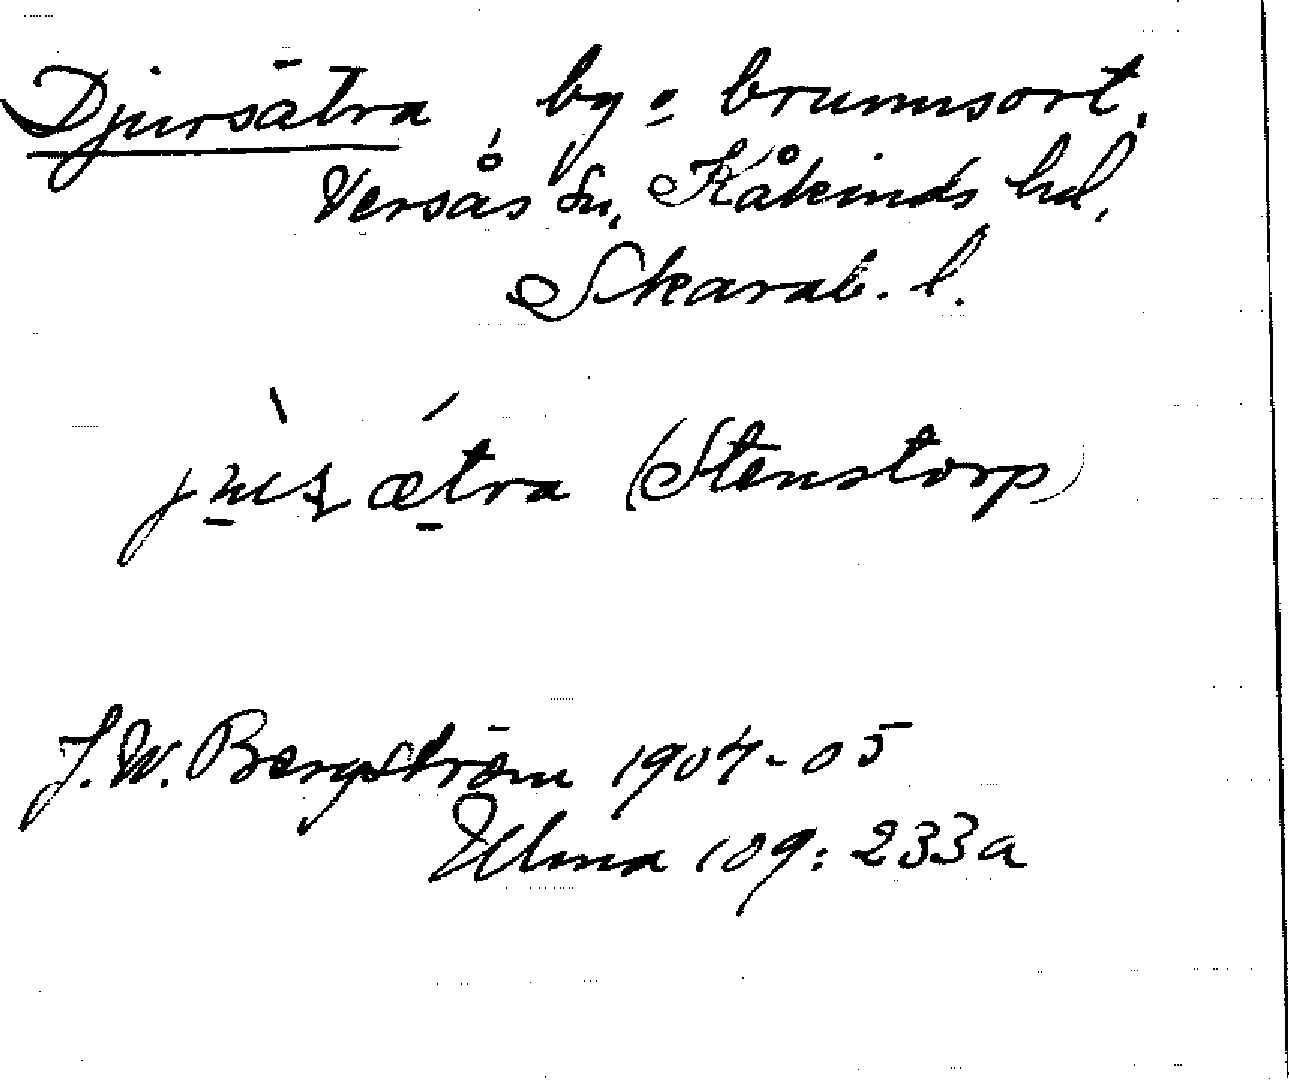 Djursätra, by o brunnsort,
Versås sn, Kåkinds hd,
Skarab. l.
(Stenstorp)
J. W. Bergström 1904-05
Ulma 109: 233a